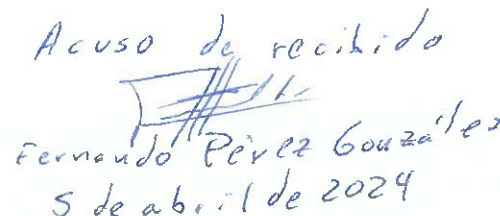 Acuso de recibido
Fernando Pérez González
5 de abril de 2024